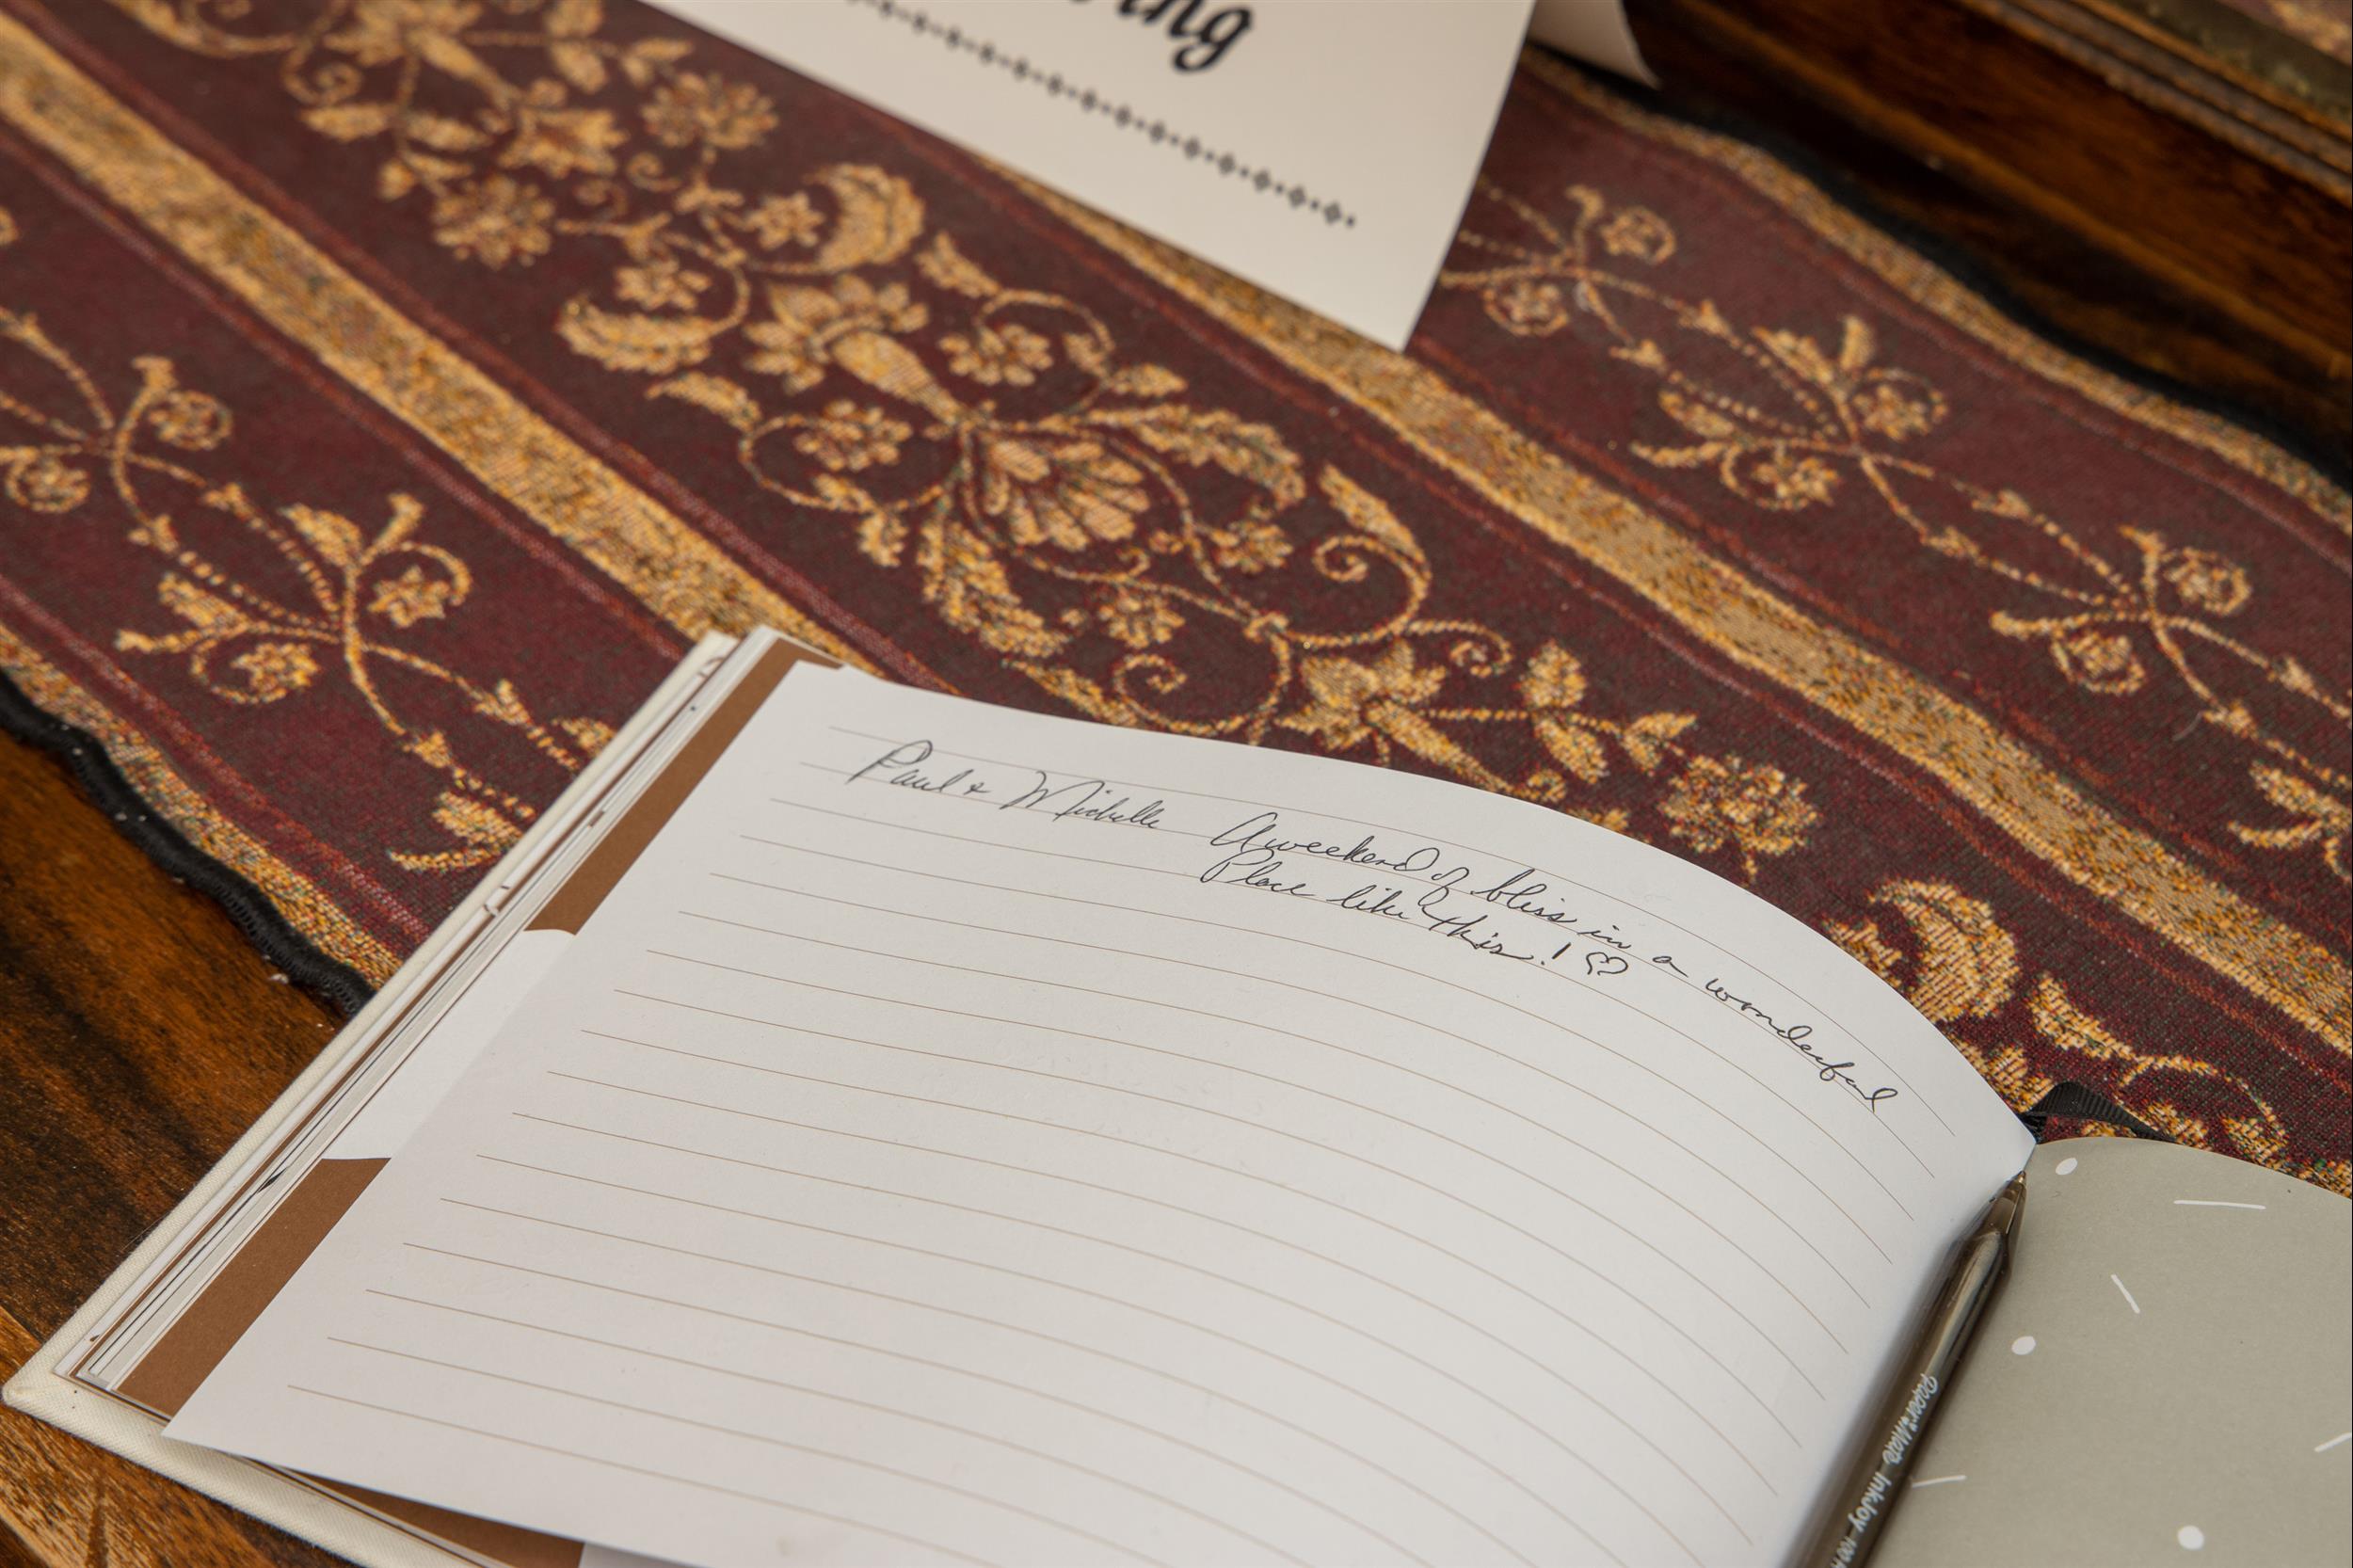 Paul & Michelle A weekend of bliss in a wonderful
Place like this! ♡
Paper Mate InkJoy 100